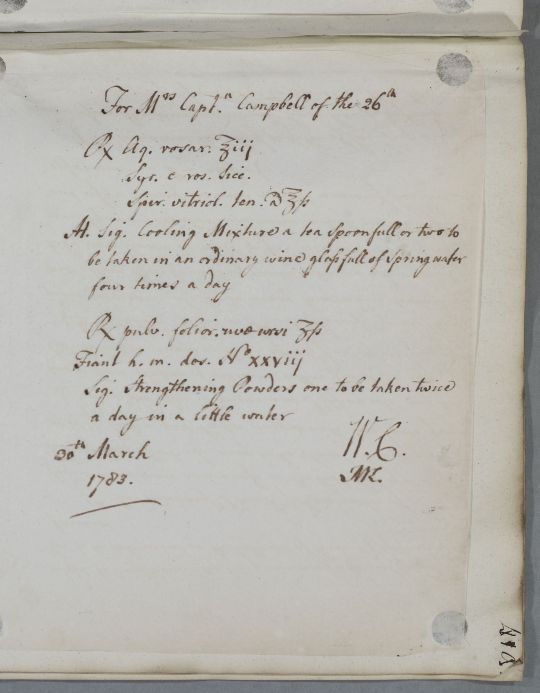 For Mrs Captn Campbell of the 26th
℞ Aq. rosar. ℥iij
Syr. e ros. sicc.
Spir. vitriol. ten. a ℥ſs
M. Sig. Cooling Mixture a tea spoonfull or two to
be taken in an ordinary wine glaſsfull of Spring water
four times a day
℞ pulv. folior. uvæ ursi ℥ſs
Fiant h. m. dos. No xxviij
Sig. Strengthening Powders one to be taken twice
a day in a little water
30th March
1783.
W.C.